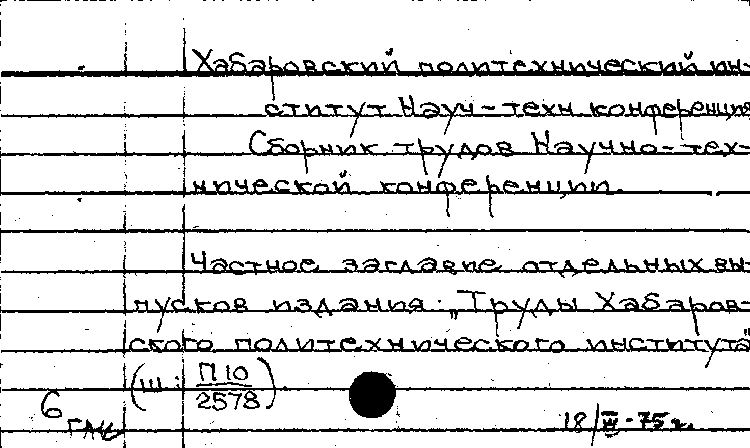 Хабаровский политехнический ин-
ститут Науч-техн конференция
Сборник трудов Научно-тех-
нической конференции.
Частное заглавие отдельных вы-
пусков издания: „Труды Хабаров-
ского политехнического института"
(ш: П10
2578)
6
18/III-75 г.